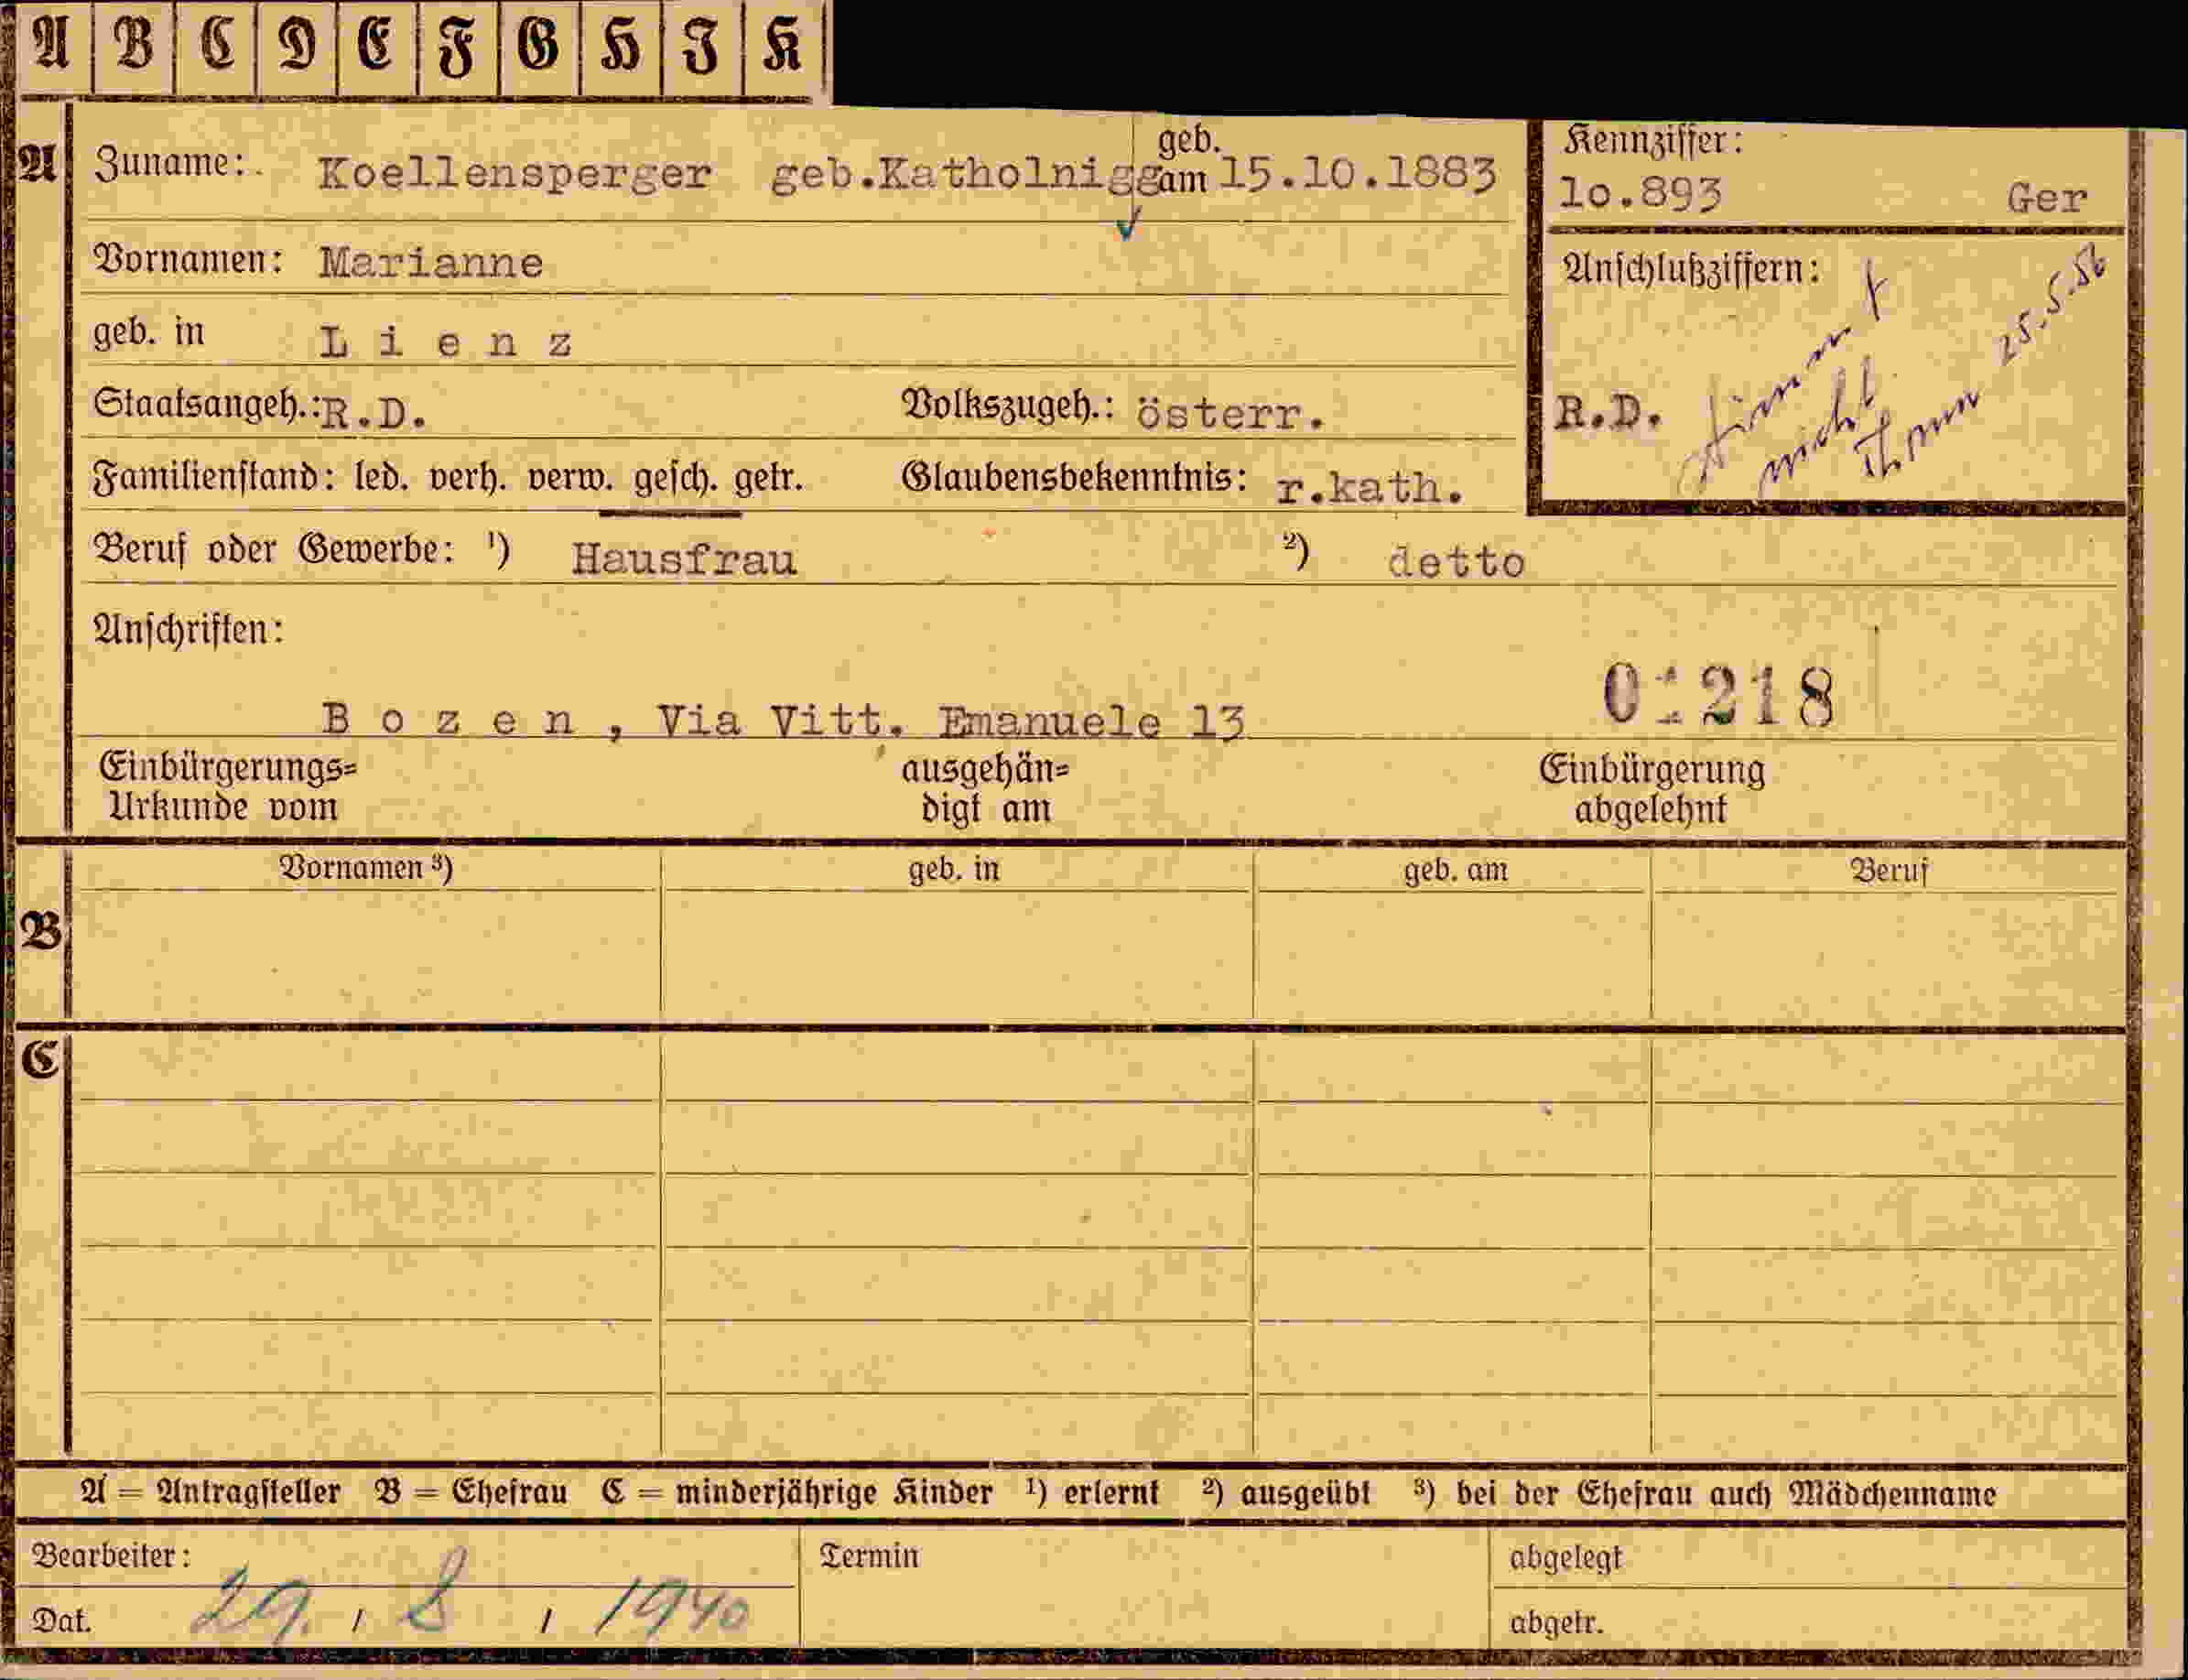 A B C D E F G H I K
A Zuname: Koellensperger geb.Katholnigg geb. am 15.10.1883
Kennziffer:
lo.893 Ger
Vornamen: Marianne
Anschlußziffern:
geb. in L i e n z
25.5.56
Staatsangeh.: R.D. Volkszugeh.: österr.
R.D. nicht
Familienstand: led. verh. verw. gesch. getr. Glaubensbekenntnis: r.kath.
Beruf oder Gewerbe: ¹) Hausfrau ²) detto
Anschriften:
01218
B o z e n , Via Vitt. Emanuele 13
Einbürgerungs= ausgehän= Einbürgerung
Urkunde vom digt am abgelehnt
Vornamen ³) geb. in geb. am Beruf
B
C
A = Antragsteller B = Ehefrau C = minderjährige Kinder ¹) erlernt ²) ausgeübt ³) bei der Ehefrau auch Mädchenname
Bearbeiter: Termin abgelegt
Dat. 29. / 8 / 1940 abgetr.